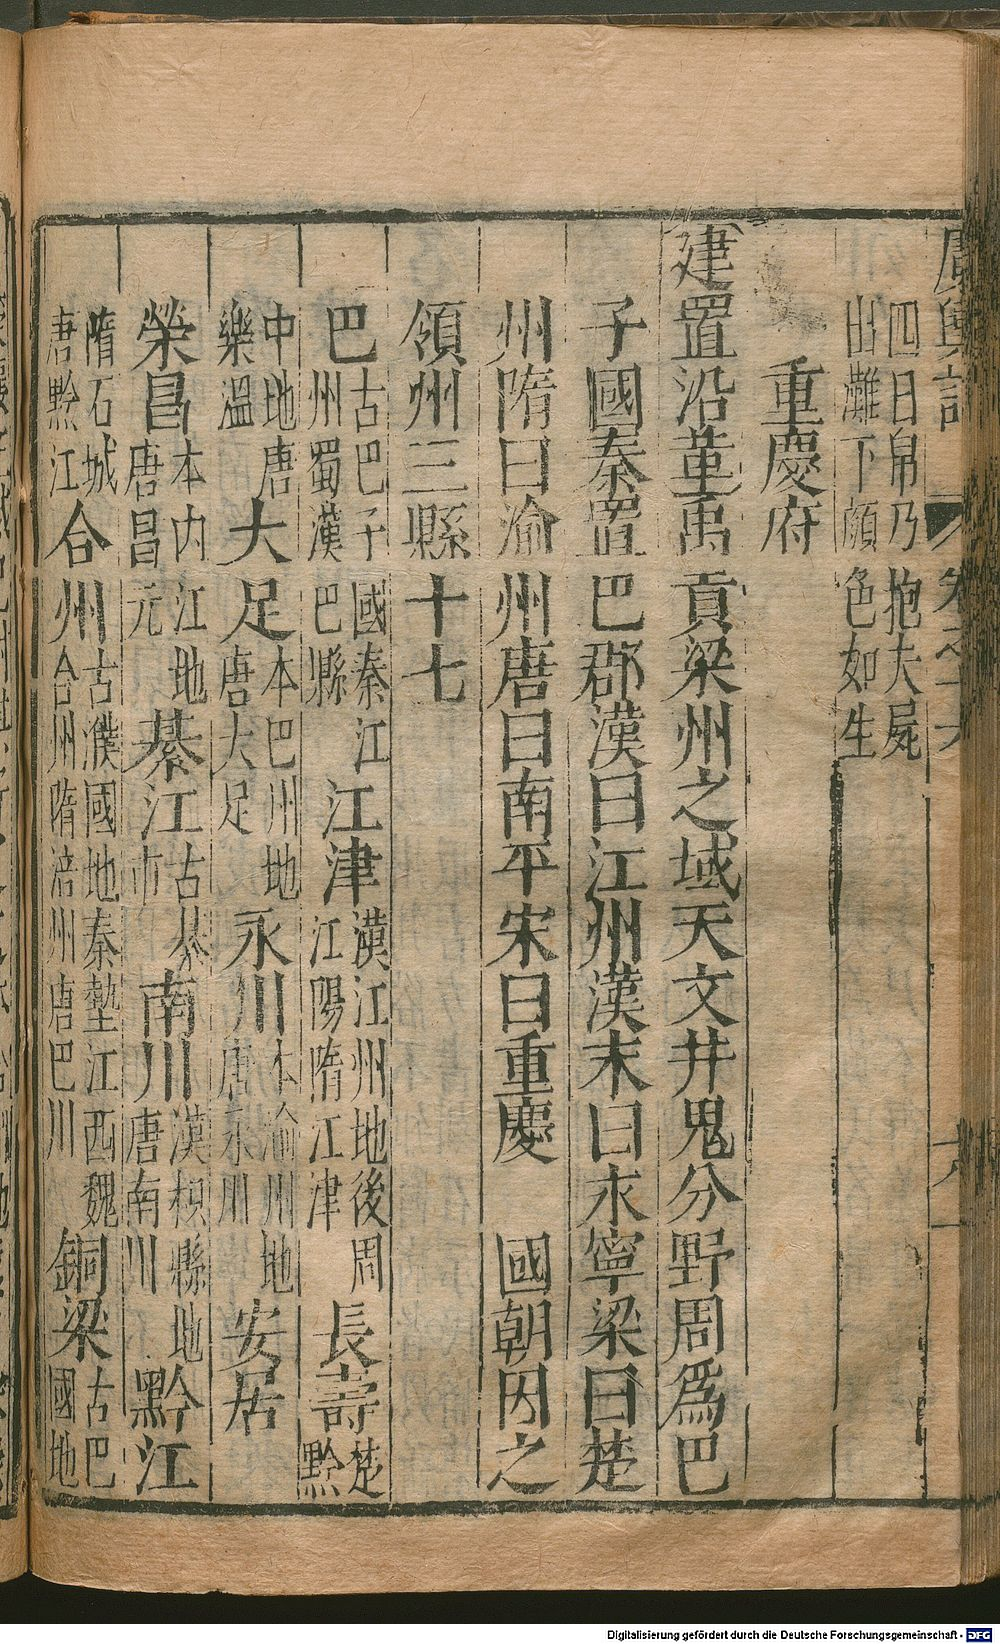 廣輿記 卷之十六 六
四日帛乃抱夫屍
出灘下顏色如生
重慶府
建置沿革禹貢梁州之域天文井鬼分野周爲巴
子國秦置巴郡漢曰江州漢末曰永寧梁曰楚
州隋曰渝州唐曰南平宋曰重慶 國朝因之
領州三縣十七
巴古巴子國秦江州蜀漢巴縣 江津漢江州地後周江陽隋江津 長壽楚黔
中地唐樂溫 大足本巴州地唐大足 永川本渝州地唐永川 安居
榮昌本內江地唐昌元 綦江古綦市 南川漢枳縣地唐南川 黔江
隋石城唐黔江 合州古濮國地秦墊江西魏合州隋涪州唐巴川 銅梁古巴國地
Digitalisierung gefördert durch die Deutsche Forschungsgemeinschaft - DFG